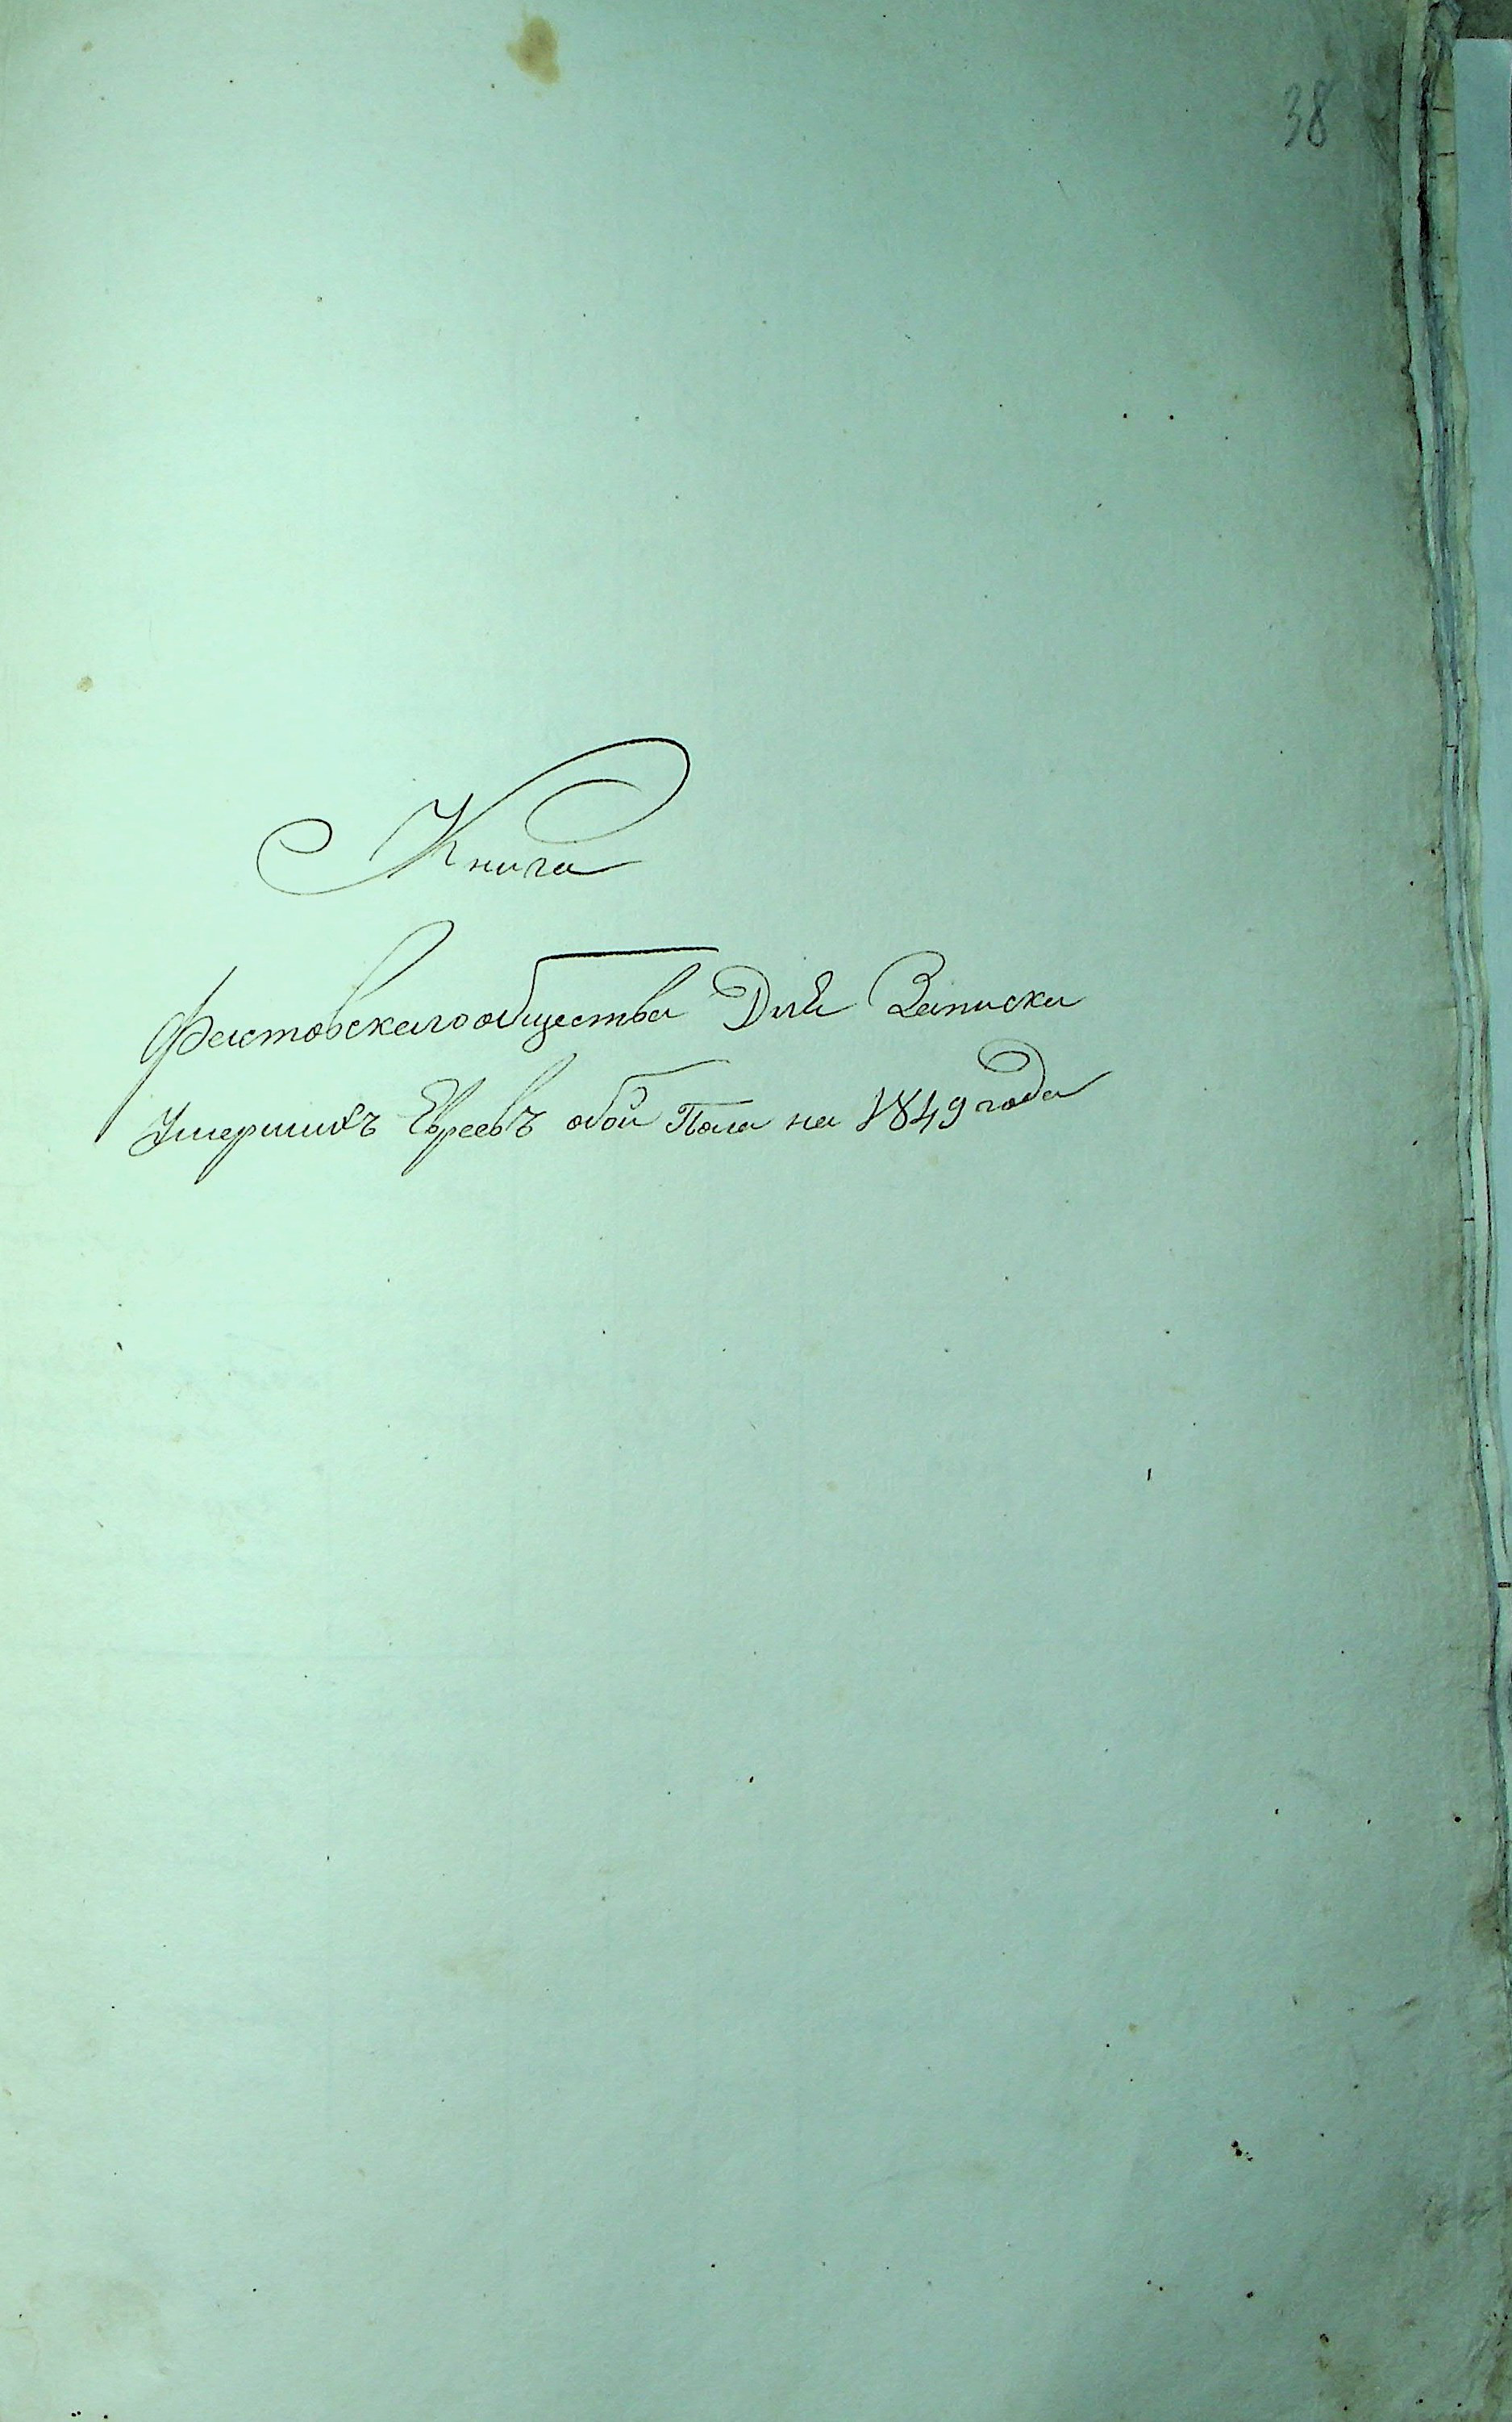 38
Книга
Фастовскаго общества Для Записки
Умершихъ Евреевъ обой Пола на 1849 года